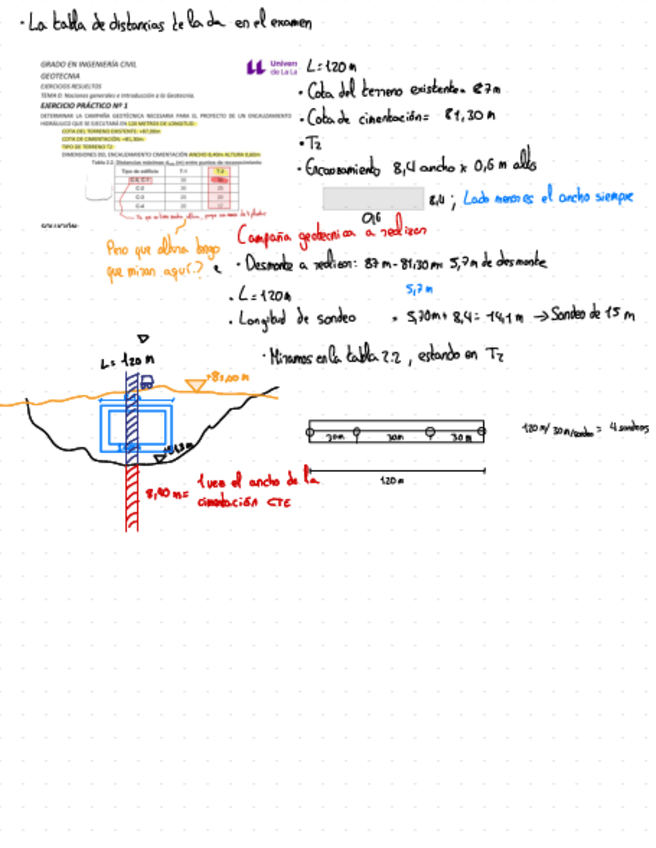 · La tabla de distancias te la da en el examen
GRADO EN INGENIERÍA CIVIL
GEOTECNIA
EJERCICIOS RESUELTOS
TEMA 0: Nociones generales e introducción a la Geotecnia.
EJERCICIO PRÁCTICO Nº 1
DETERMINAR LA CAMPAÑA GEOTÉCNICA NECESARIA PARA EL PROYECTO DE UN ENCAUZAMIENTO
HIDRÁULICO QUE SE EJECUTARÁ EN 120 METROS DE LONGITUD:
COTA DEL TERRENO EXISTENTE: +87,00m
COTA DE CIMENTACIÓN: +81,30m
TIPO DE TERRENO T2
DIMENSIONES DEL ENCAUZAMIENTO CIMENTACIÓN ANCHO 8,40m ALTURA 0,60m
Tabla 2.2. Distancias máximas dmáx (m) entre puntos de reconocimiento
Tipo de edificio T-1 T-2
C-2
C-3
C-4
SOLUCIÓN:
Univers
de La La
L= 120 m
· Cota del terreno existente = 87m
· Cota de cimentación = 81,30m
· T2
· Encauzamiento 8,4 ancho x 0,6 m alto
8,4 ; Lado menor es el ancho siempre
0,6
Pero que altura tengo
que miran aquí.?
Campaña geotecnica a realizar
· Desmonte a realizar: 87 m - 81,30 m = 5,7m de desmonte
5,7 m
· L = 120m
· Longitud de sondeo = 5,70m + 8,4 = 14,1 m → Sondeo de 15 m
· Miramos en la tabla 2.2 , estando en T2
L= 120 m
30m 30m 30 m
120 m
120 m/ 30 m/sondeo = 4 sondeos
8,40 m = 1 vez el ancho de la
cimentación CTE